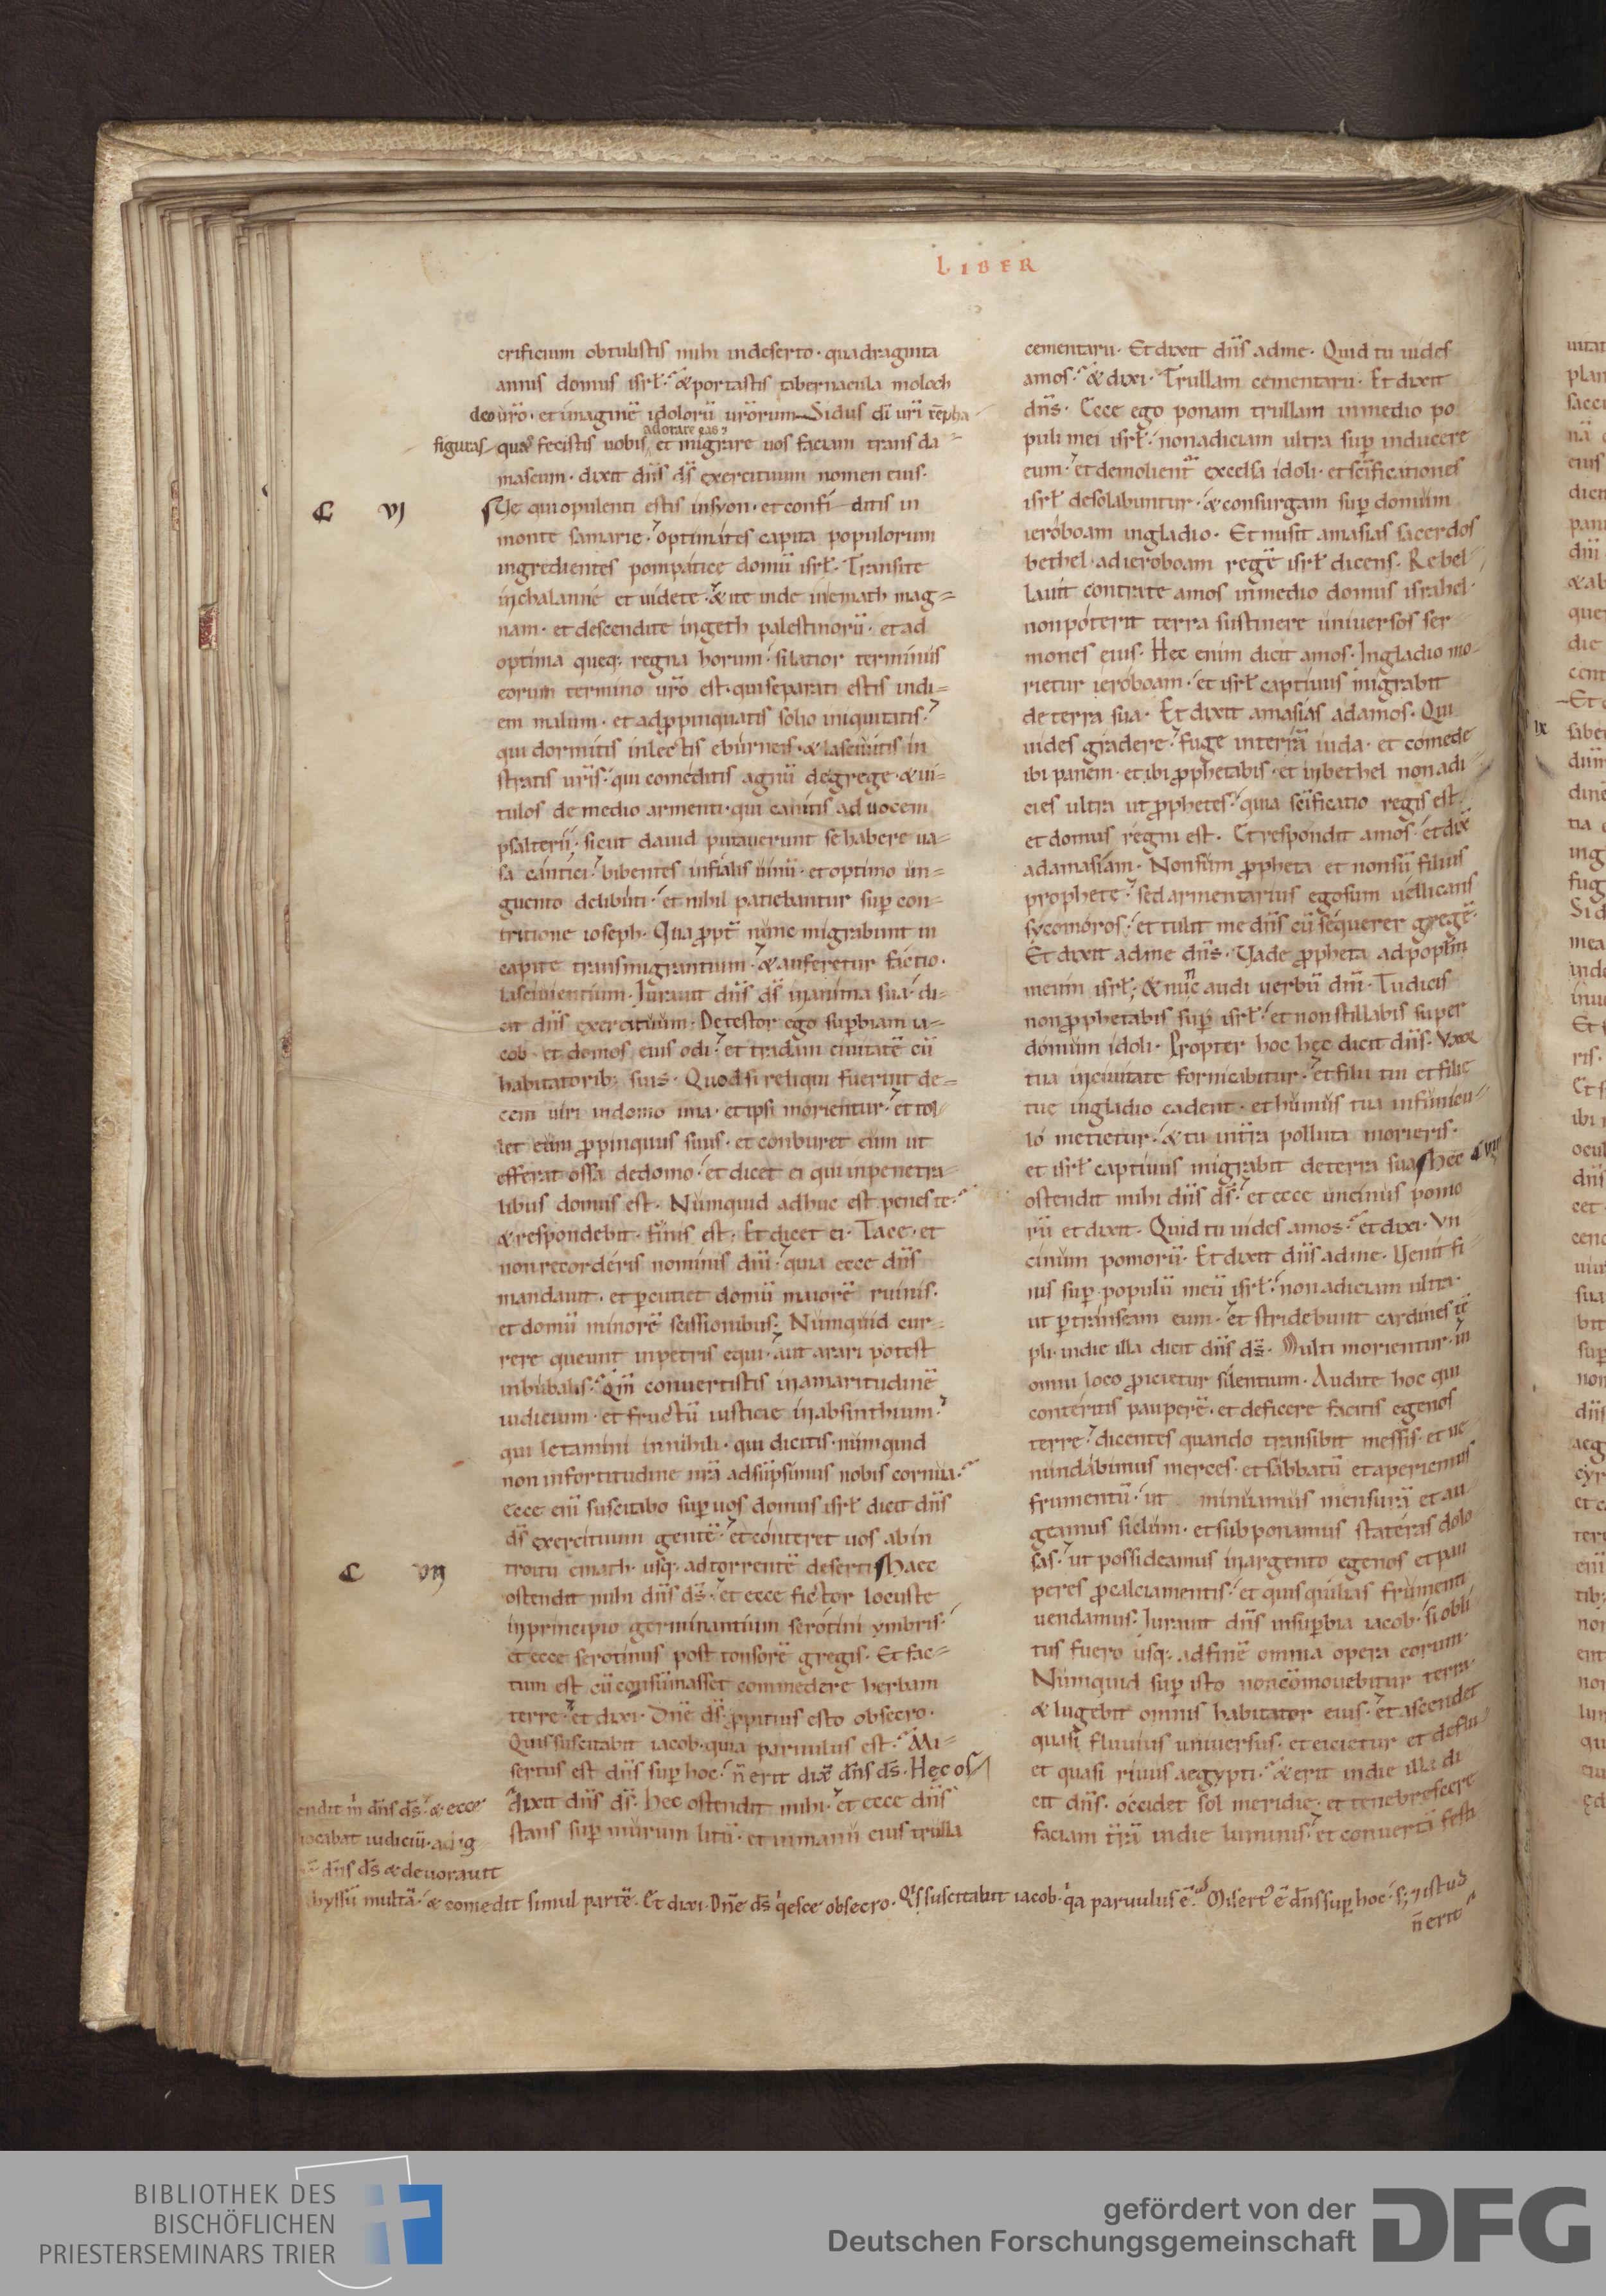 LIBER
crificium obtulistis mihi indeserto· quadraginta
annis domus isrł· & portastis tabernacula moloch
deo ur̄o· et imaginē idolorū ur̄orum Sidus dī ur̄i rēpha
adorare eas
figuras quas fecistis uobis, et migrare uos faciam trans da
mascum· dixit dn̄s ds̄ exercituum nomen eius·
C VI
Ue qui opulenti estis insyon· et confi ditis in
monte samarie· optimates capita populorum
ingredientes pompatice domū isrł· Transite
inchalanne et uidete· & ite inde inemath mag=
nam· et descendite ingeth palestinorū· et ad
optima queq; regna horum· si latior terminus
eorum termino ur̄o est· qui separati estis indi=
em malum· et adp̄pinquatis solio iniquitatis·
qui dormitis inlectis eburneis· & lasciuitis in
stratis ur̄is· qui comeditis agnū degrege· & ui=
tulos de medio armenti· qui canitis ad uocem
psalterij· sicut dauid putauerunt se habere ua=
sa cantici· bibentes infialis uinū· et optimo un=
guento delibuti· et nihil patiebantur sup con=
tritione ioseph· Qua p̄pt̄ nunc migrabunt in
capite transmigrantium· & auferetur factio·
lasciuientium· Iurauit dn̄s ds̄ inanima sua· di=
cit dn̄s exercituum· Detestor ego supbiam ia=
cob· et domos eius odi· et tradam ciuitatē cū
habitatorib; suis· Quodsi reliqui fuerint de=
cem uiri indomo una· et ipsi morientur· et tol=
let eum p̄pinquus suus· et conburet eum ut
efferat ossa dedomo· et dicet ei qui inpenetra=
libus domus est· Numquid adhuc est penes te·
& respondebit· finis est· Et dicet ei· Tace· et
non recorderis nominis dn̄i· quia ecce dn̄s
mandauit· et pcutiet domū maiorē ruinis·
et domū minorē scissionibus· Numquid cur=
rere queunt inpetris equi· aut arari potest
inbubalis· Qm̄ conuertistis inamaritudinē
iudicium· et fructū iusticie inabsinthium·
qui letamini innihili· qui dicitis· numquid
non infortitudine nr̄a adsūpsimus nobis cornua·
Ecce enī suscitabo sup uos domus isrł dicit dn̄s
ds̄ exercituum gentē· et conteret uos abin
troitu emath· usq; adtorrentē deserti Haec
C VII
ostendit mihi dn̄s ds̄· et ecce fictor locuste
inprincipio germinantium serotini ymbris·
et ecce serotinus post tonsorē gregis· Et fac=
tum est cū consūmasset commedere herbam
terre· et dixi· Dn̄e ds̄ p̄pitius esto obsecro·
Quis suscitabit iacob· quia paruulus est· Mi=
sertus est dn̄s sup hoc· n̄ erit dix̄ dn̄s ds̄· Hęc os
dixit dn̄s ds̄· hec ostendit mihi· et ecce dn̄s
stans sup murum litū· et inmanū eius trulla
cementarii· Et dixit dn̄s adme· Quid tu uides
amos· & dixi· Trullam cementarii· Et dixit
dn̄s· Ecce ego ponam trullam inmedio po
puli mei isrł· nonadiciam ultra sup inducere
eum· et demolient excelsa idoli· et sc̄ificationes
isrł desolabuntur· & consurgam sup domum
ieroboam ingladio· Et misit amasias sacerdos
bethel· adieroboam regē isrł dicens· Rebel
lauit contrate amos inmedio domus israhel·
non poterit terra sustinere uniuersos ser
mones eius· Hec enim dicit amos· Ingladio mo
rietur ieroboam· et isrł captiuus migrabit
de terra sua· Et dixit amasias adamos· Qui
uides gradere· fuge interrā iuda· et comede
ibi panem· et ibi p̄phetabis· et inbethel non adi
cies ultra ut p̄phetes· quia sc̄ificatio regis est·
et domus regni est· Et respondit amos· et dix̄
adamasiam· Non sum p̄pheta et nonsū filius
prophete· sed armentarius egosum uellicans
sycomoros· et tulit me dn̄s cū sequerer gregē·
Et dixit adme dn̄s· Uade p̄pheta adpopłm
meum isrł; & nunc audi uerbū dn̄i· Tu dicis
non p̄phetabis sup isrł· et non stillabis super
domum idoli· Propter hoc hęc dicit dn̄s· Uxor
tua inciuitate fornicabitur· et filii tui et filie
tue ingladio cadent· et humus tua infunicu
lo metietur· & tu intr̄a polluta morieris·
et isrł captiuus migrabit deterra sua Hec C VIII
ostendit mihi dn̄s ds̄· et ecce uncinus pomo
rū et dixit· Quid tu uides amos· et dixi· Un
cinum pomorū· Et dixit dn̄s adme· Uenit fi
nis sup populū meū isrł· non adiciam ultra·
ut ptranseam eum· et stridebunt cardines tē
pli· indie illa dicit dn̄s ds̄· Multi morientur· in
omni loco p̄icietur silentium· Audite hoc qui
conteritis pauperē· et deficere facitis egenos
terre· dicentes quando transibit messis· et ue
nundabimus merces· et sabbatū et aperiemus
frumentū· ut minuamus mensurā et au
geamus siclum· et subponamus stateras dolo
sas· ut possideamus inargento egenos et pau
peres p̄calciamentis· et quisquilias frumenti
uendamus· Iurauit dn̄s insupbia iacob· si obli
tus fuero usq; adfinē omnia opera eorum·
Numquid sup isto noncōmouebitur terra·
& lugebit omnis habitator eius· et ascendet
quasi fluuius uniuersus· et eicietur et deflu
et quasi riuus aegypti· & erit indie illa di
cit dn̄s· occidet sol meridie· et tenebrescere
faciam tr̄ā indie luminis· et conuertā festi
endit m̄ dn̄s ds̄· & ecce
ocabat iudiciū· ad ig
dn̄s ds̄ & deuorauit
byssū multā· & comedit simul partē· Et dixi· Dn̄e ds̄ q̍esce obsecro· Q̍s suscitabit iacob· q̍a paruulus ē· Misert ē dn̄s sup hoc· s; istud
n̄ erit
BIBLIOTHEK DES
BISCHÖFLICHEN
PRIESTERSEMINARS TRIER
gefördert von der
Deutschen Forschungsgemeinschaft
DFG